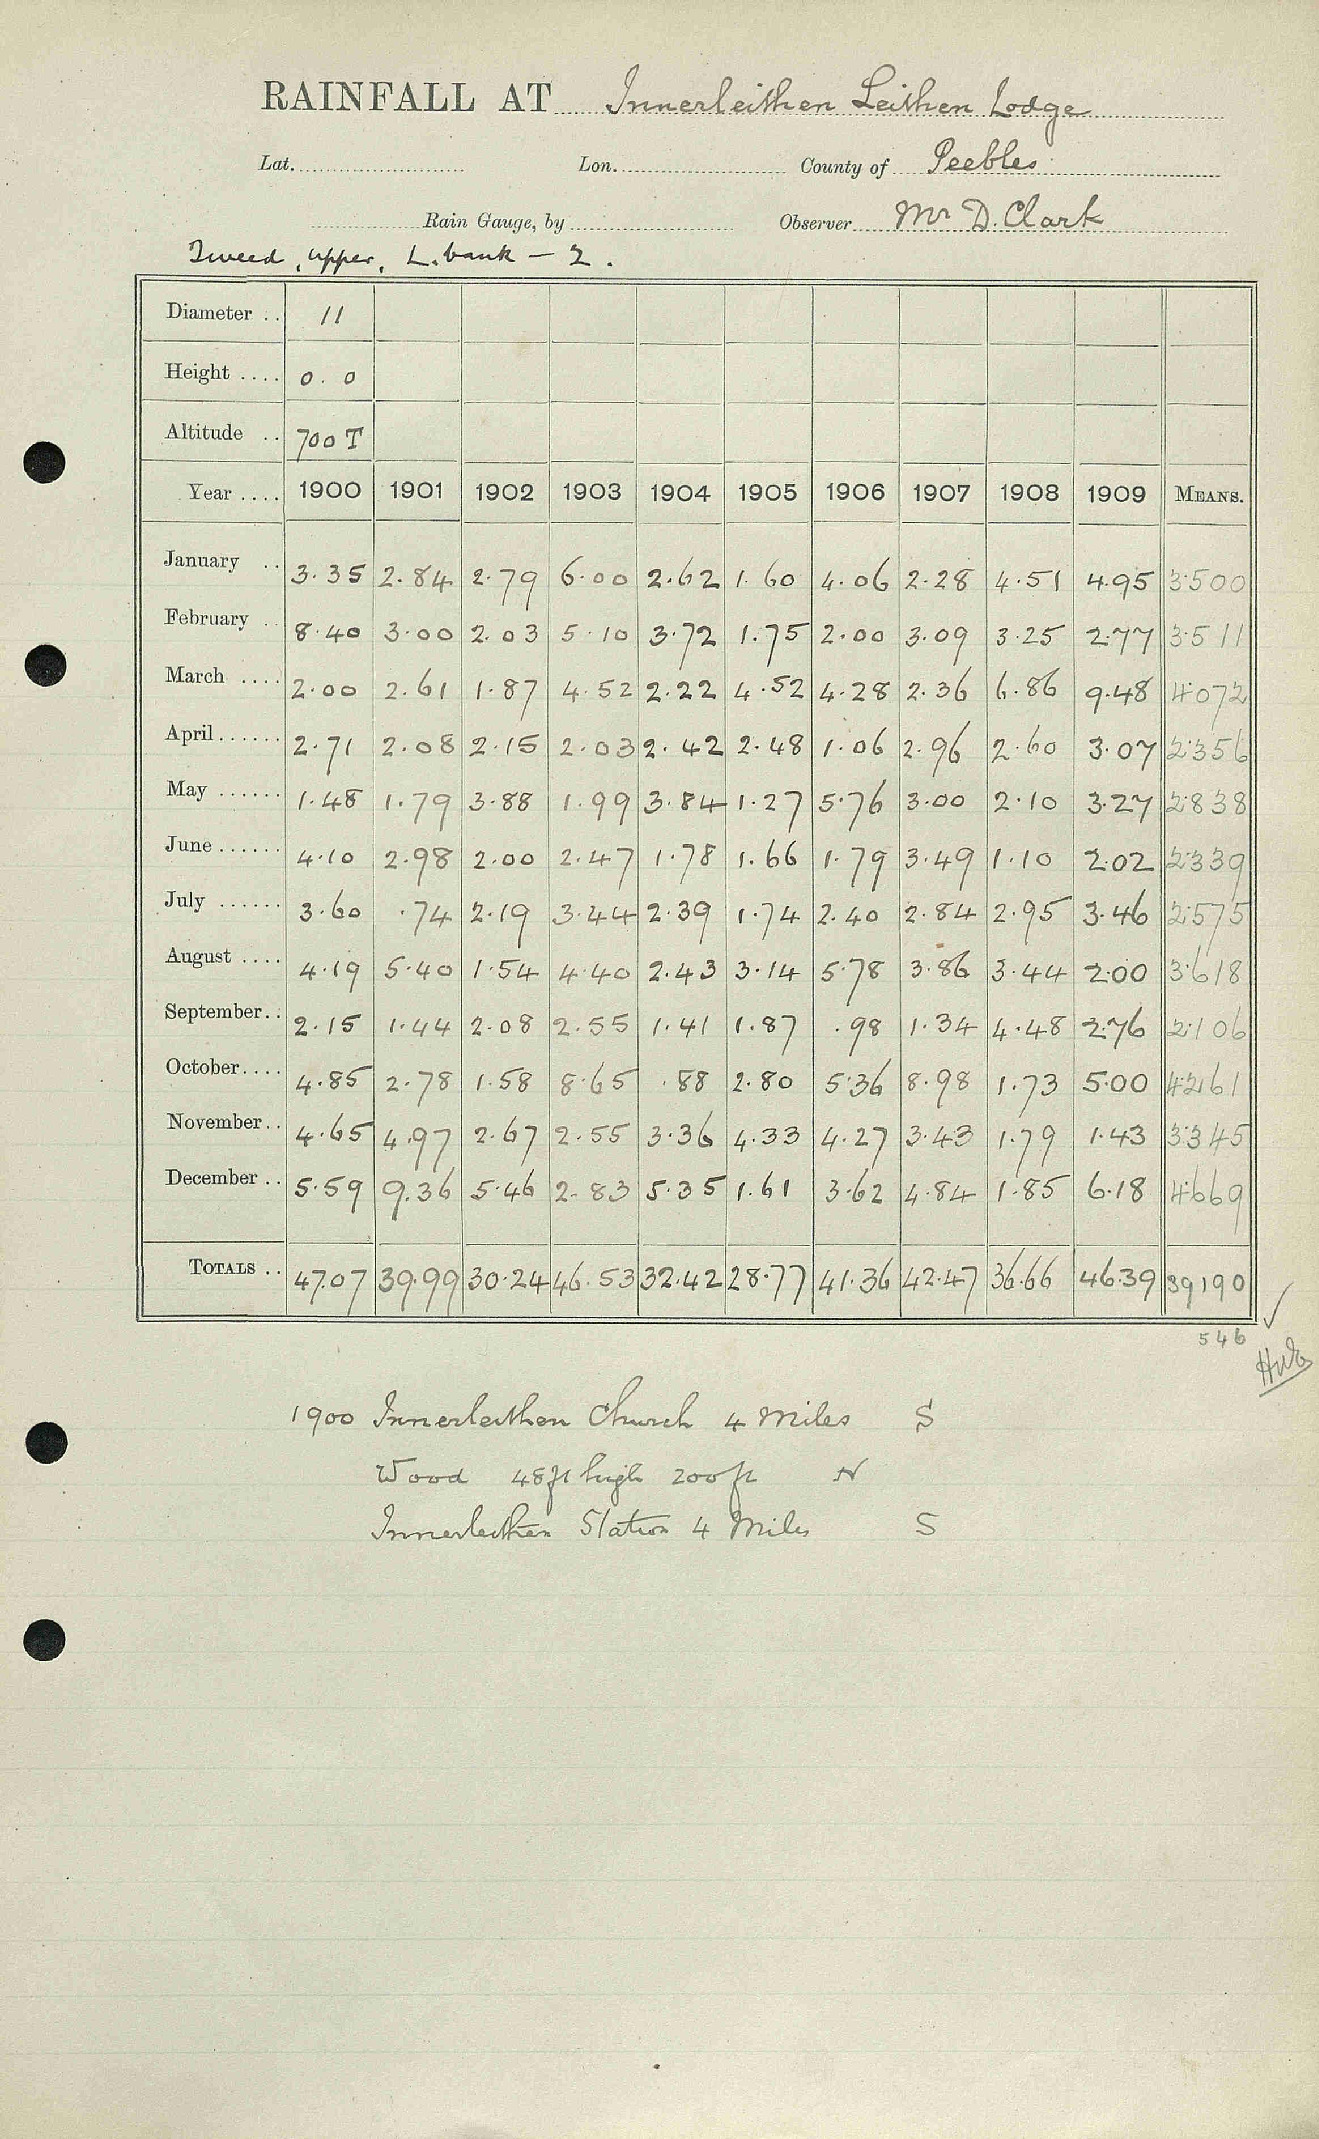 RAINFALL AT Innerleithen Leithen Lodge
Lat. Lon. County of Peebles
Rain Gauge, by Observer Mr D. Clark
Tweed, upper, L. bank – 2.
Diameter .. 11
Height .... 0. 0
Altitude .. 700 T
Year .... 1900 1901 1902 1903 1904 1905 1906 1907 1908 1909 MEANS.
January .. 3.35 2.84 2.79 6.00 2.62 1.60 4.06 2.28 4.51 4.95 3.500
February .. 8.40 3.00 2.03 5.10 3.72 1.75 2.00 3.09 3.25 2.77 3.511
March .... 2.00 2.61 1.87 4.52 2.22 4.52 4.28 2.36 6.86 9.48 4.072
April ...... 2.71 2.08 2.15 2.03 2.42 2.48 1.06 2.96 2.60 3.07 2.356
May ...... 1.48 1.79 3.88 1.99 3.84 1.27 5.76 3.00 2.10 3.27 2.838
June ...... 4.10 2.98 2.00 2.47 1.78 1.66 1.79 3.49 1.10 2.02 2.339
July ...... 3.60 .74 2.19 3.44 2.39 1.74 2.40 2.84 2.95 3.46 2.575
August .... 4.19 5.40 1.54 4.40 2.43 3.14 5.78 3.86 3.44 2.00 3.618
September .. 2.15 1.44 2.08 2.55 1.41 1.87 .98 1.34 4.48 2.76 2.106
October .... 4.85 2.78 1.58 8.65 .88 2.80 5.36 8.98 1.73 5.00 4.261
November .. 4.65 4.97 2.67 2.55 3.36 4.33 4.27 3.43 1.79 1.43 3.345
December .. 5.59 9.36 5.46 2.83 5.35 1.61 3.62 4.84 1.85 6.18 4.669
TOTALS .. 47.07 39.99 30.24 46.53 32.42 28.77 41.36 42.47 36.66 46.39 39.190
546
1900 Innerleithen Church 4 miles S
Wood 48ft high 200ft N
Innerleithen Station 4 Miles S